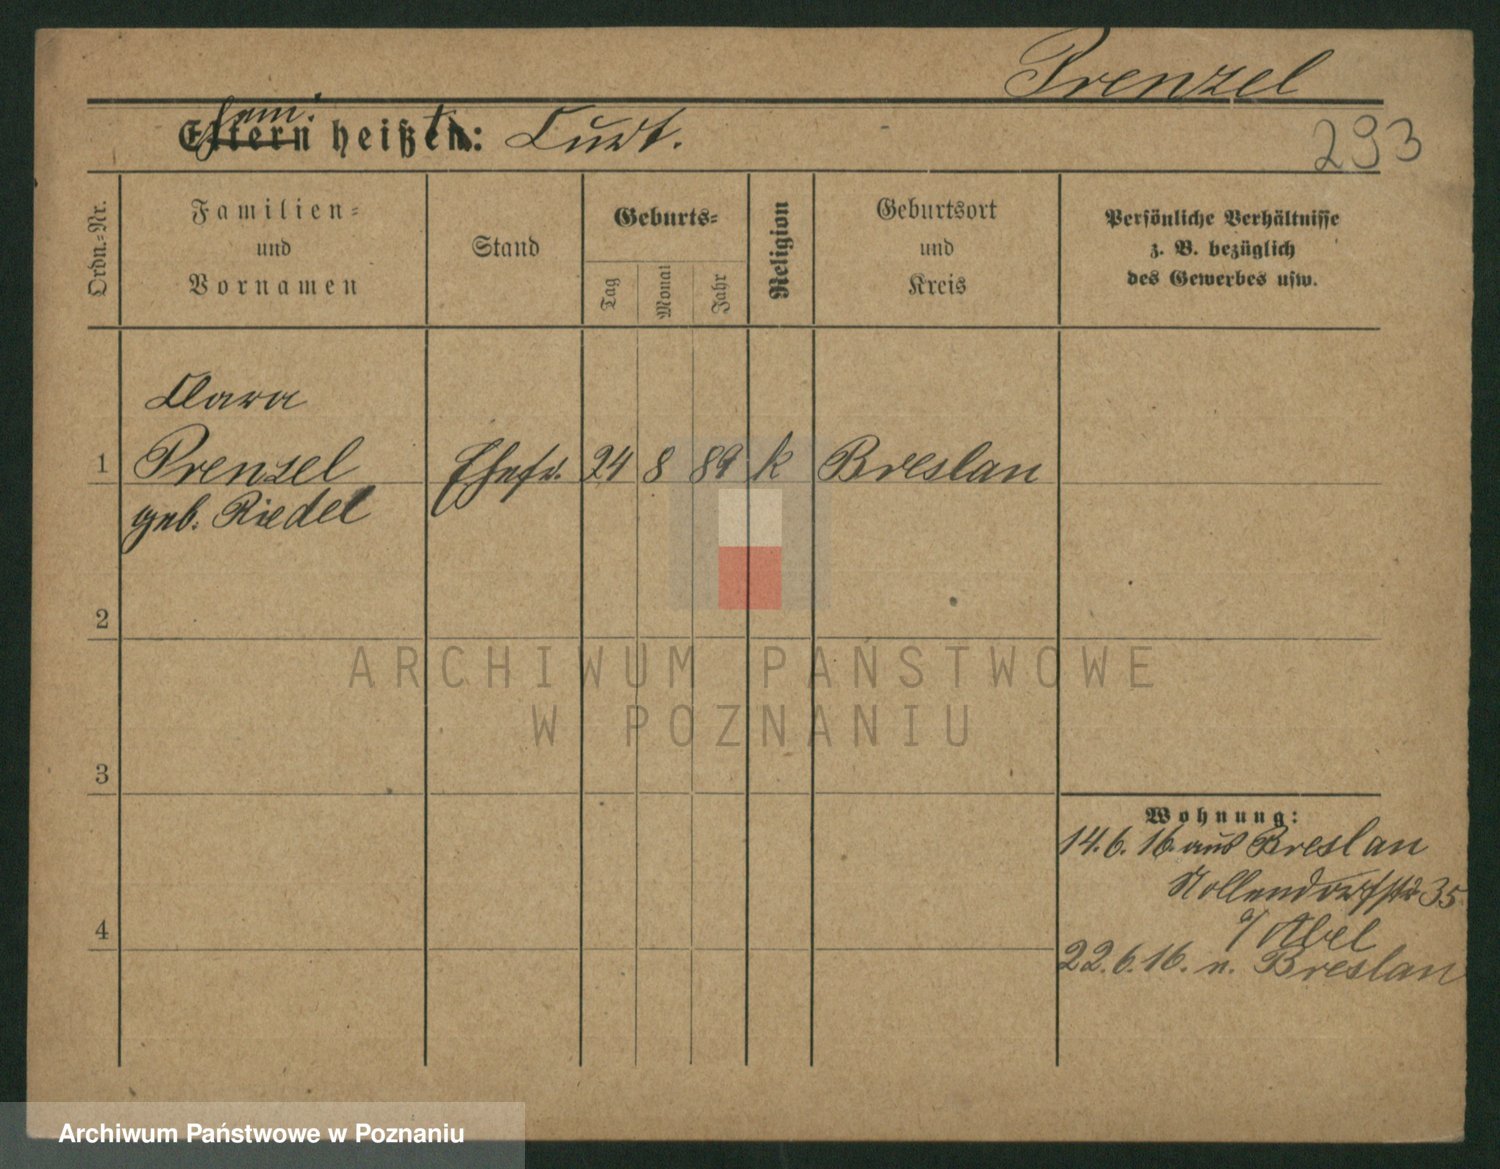 Prenzel
293
Eltern heißt: Curt.
Ordn.=Nr.
Familien=
und
Vornamen
Stand
Geburts=
Tag
Monat
Jahr
Religion
Geburtsort
und
Kreis
Persönliche Verhältnisse
z. B. bezüglich
des Gewerbes usw.
Clara
1 Prenzel Ehefr. 24 8 89 k Breslau
geb. Riedel
2
ARCHIWUM PAŃSTWOWE
W POZNANIU
3
Wohnung:
14.6.16. aus Breslau
Nollendorfstr 35
4
b/ Abel
22.6.16. n. Breslau
Archiwum Państwowe w Poznaniu